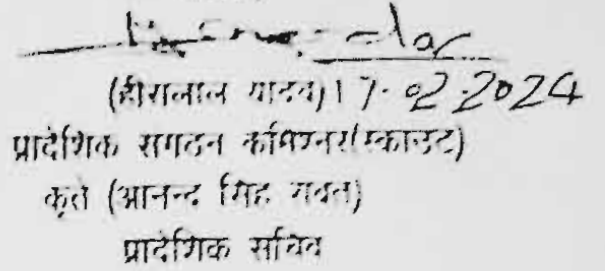 (हीरालाल यादव) 17.02.2024
प्रादेशिक संगठन कमिश्नर(स्काउट)
कृते (आनन्द सिंह रावत)
प्रादेशिक सचिव